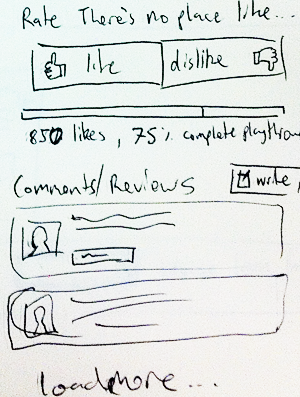 Rate There's no place like...
like dislike
850 likes, 75% complete playthrou
Comments/Reviews write
load more...